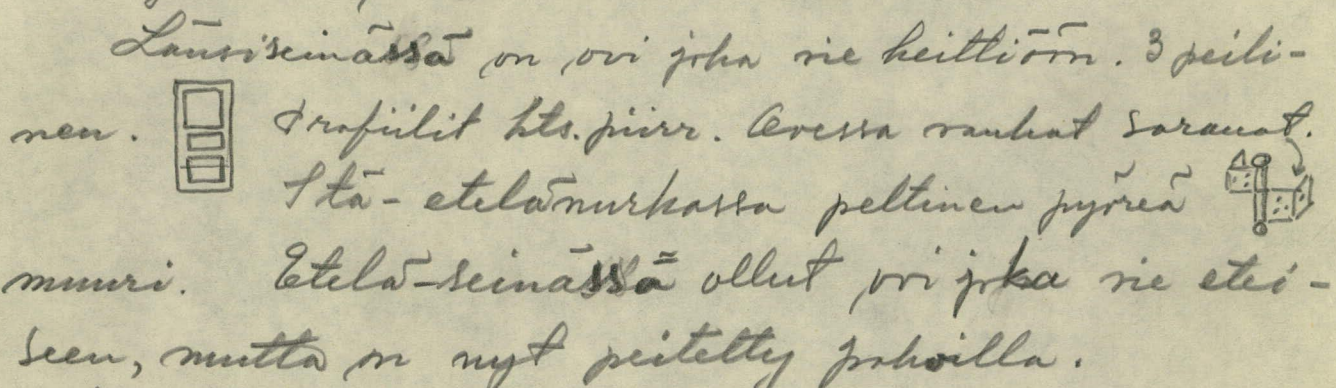 Länsiseinässä on ovi joka vie keittiöön. 3 peili-
nen. Profiilit kts. piirr. Ovessa vanhat saranat.
Itä-etelänurkassa peltinen pyöreä
muuri. Etelä-seinässä ollut ovi joka vie etei-
seen, mutta on nyt peitetty pahvilla.